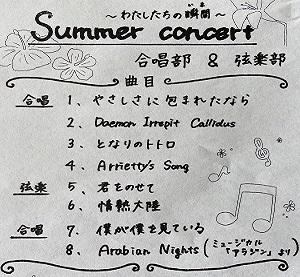 ～わたしたちの瞬間～
いま
Summer concert
合唱部 & 弦楽部
曲目
合唱 1、やさしさに包まれたなら
2、Daemon Irrepit Callidus
3、となりのトトロ
4、Arrietty's Song
弦楽 5、君をのせて
6、情熱大陸
合唱 7、僕が僕を見ている
8、Arabian Nights (ミュージカル「アラジン」より)